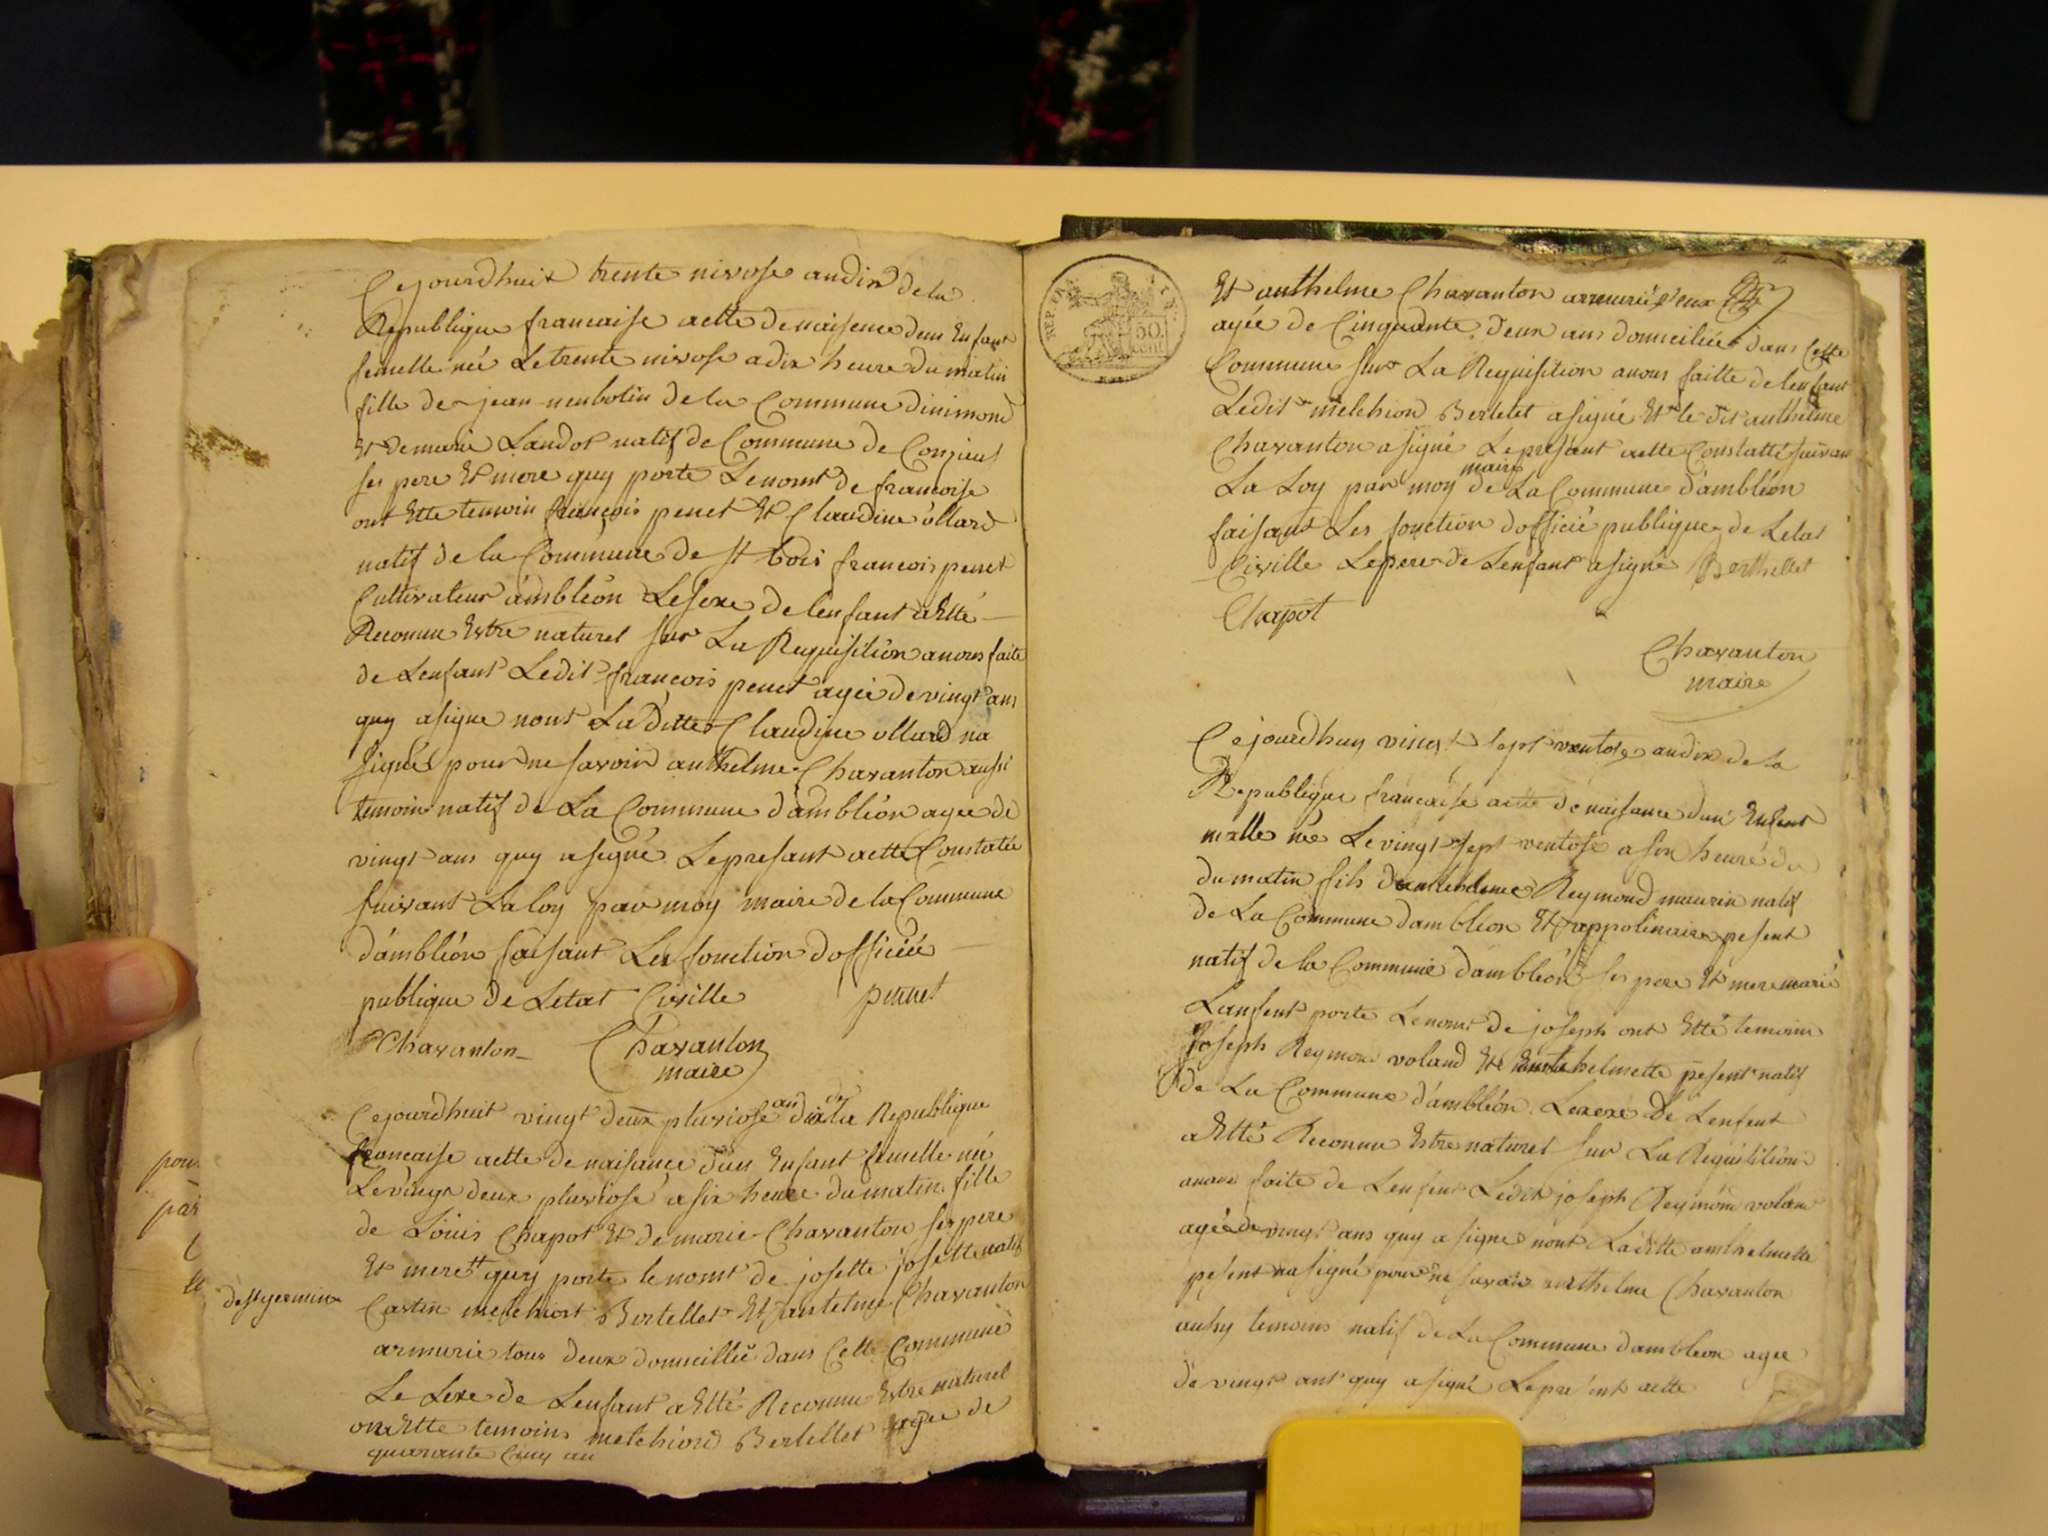 Cejourdhuit trente nivose an dix de la
Republique francaise acte de naisence dens Enfant
femelle née Le trente nivose a dix heure du matin
fille de jean neubotin de la Commune dinimond
Et de marie Landot natif de Commune de Conzieut
ses pere Et more quy porte Lenomt de francoise
ont Ette temoin francois penet Et Claudine ollard
natif de la Commune de St bois francois penet
Cultivateur ambléon Lesexe de lenfant a Etté
Reconnu Estre naturel sur La Requisition a nous faite
de Lenfant Ledit francois penet agée de vingt ans
quy a signe nont La ditte Claudine ollard na
signé pour ne savoir anthelme Chavanton aussi
temoin natif de La Commune d'ambléon agee de
vingt ans quy a signé Lepresant acette Constatée
suivant La loy par moy maire de la Commune
d'ambléon faisant Les fonction dofficiée
publique de Letat Civille penet
Chavanton Chavanton
maire
Cejourdhuit vingt deux pluviose an dix de la Republique
francaise acette de naisance d'un Enfant femelle née
Le vingt deux pluviose a six heure du matin fille
de Louis Chapot Et de marie Chavanton ses pere
Et mere quy porte le nomt de josette josette natif
de st germain
Castin melchiort Bertellet Et antelme Chavanton
armurie tous deux domicillié dans Cette Commune
Le Sexe de Lenfant a Etté Reconnu Estre naturel
on Ette temoins melchiord Bertellet agée de
quarante Cinq an
pour
par
50
cent
REP. FRA.
Et anthelme Chavanton armurié
agée de Cinquante deux ans domiciliée dans Cette
Commune sur La Requisition anous faitte de lenfant
Ledit melchiord Bertelet a signé Et le dit anthelme
Chavanton a signé Lepresant acette Constatté suivan
La Loy par moy maire de La Commune d'ambléon
faisant Les fonction dofficié publique de Letat
Civille Lepere de Lenfant a signé Berthellet
Chapot
Chavanton
maire
Cejourdhuy vingt sept ventose an dix de la
Republique francaise acette de naisance dun Enfent
malle née Le vingt sept ventose a six heure du
du matin fils Reymond natif
de La Commune d'ambléon Et appolinaire pesent
natif de la Commune d'ambléon ses pere Et mere marié
Lanfent porte Lenomt de joseph ont Etté temoin
Joseph Reymond voland Et anthelmette pesent natif
de La Commune d'ambléon Lexexe de Lenfent
a Etté Reconnu Estre naturel sur La Requisition
anous faite de Lenfent Ledit joseph Reymond volan
agée de vingt ans quy a signe nont Laditte anthelmette
pesent na signé pour ne savoir anthelme Chavanton
aussy temoins natif de La Commune d'ambleon agee
de vingt ant quy a signé Lepresent acette